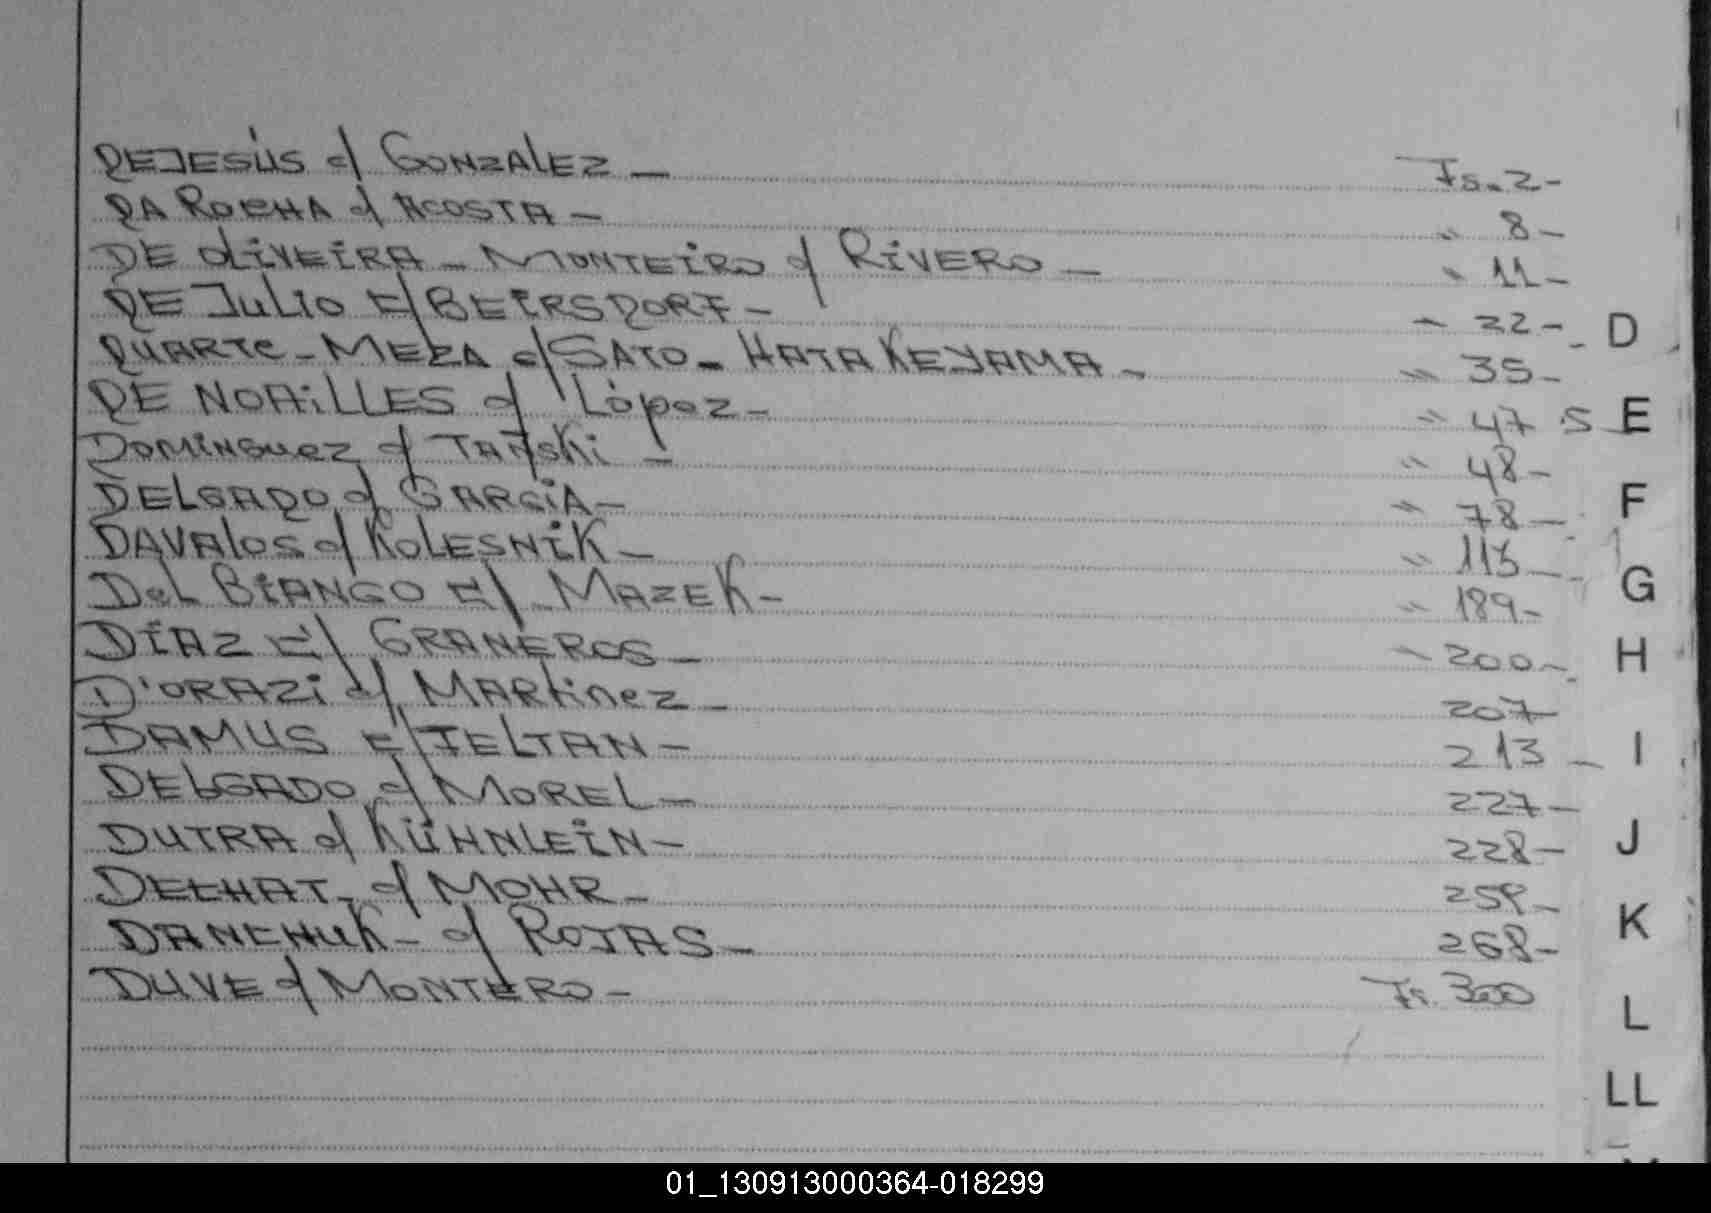 DEJESÚS c/ GONZALEZ — Fs. 2-
DA ROCHA c/ ACOSTA — " 8-
DE OLIVEIRA - MONTEIRO c/ RIVERO — " 11-
DE JULIO c/ BEIRSDORF — " 22-
D
DUARTE - MEZA c/ SATO - HATAKEYAMA - " 35-
DE NOAILLES c/ López - " 47 S
E
DOMINGUEZ c/ TAÑSKI — " 48-
DELGADO c/ GARCIA — " 78-
F
DAVALOS c/ KOLESNIK — " 113-
DEL BIANGO c/ MAZEK - " 189-
G
DÍAZ c/ GRANEROS — " 200-
H
D'ORAZI c/ MARTINEZ — 207-
DAMUS c/ IELTAN — 213 -
I
DELGADO c/ MOREL — 227-
DUTRA c/ KÜHNLEIN — 228-
J
DECHAT - c/ MOHR — 259-
DANCHUK - c/ ROJAS — 268-
K
DUVE c/ MONTERO — Fs. 300
L
LL
01_130913000364-018299